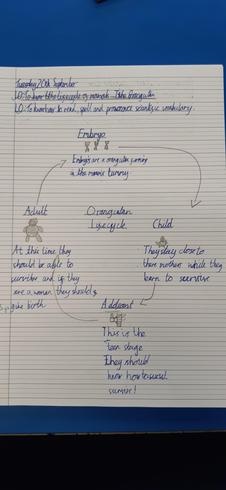 Tuesday 20th September
LO: To learn the lifecycle of mammals - The Orangutan
LO: To learn how to read, spell and pronounce scientific vocabulary.
Embryo
Embryo are a orangutan forming
in the mums tummy
Adult
Orangutan
Lifecycle
Child
At this time they
should be able to
survive and if they
are a woman they should
give birth
They stay close to
there mothers while they
learn to survive
This is the
teen stage
They should
know how to
survive!